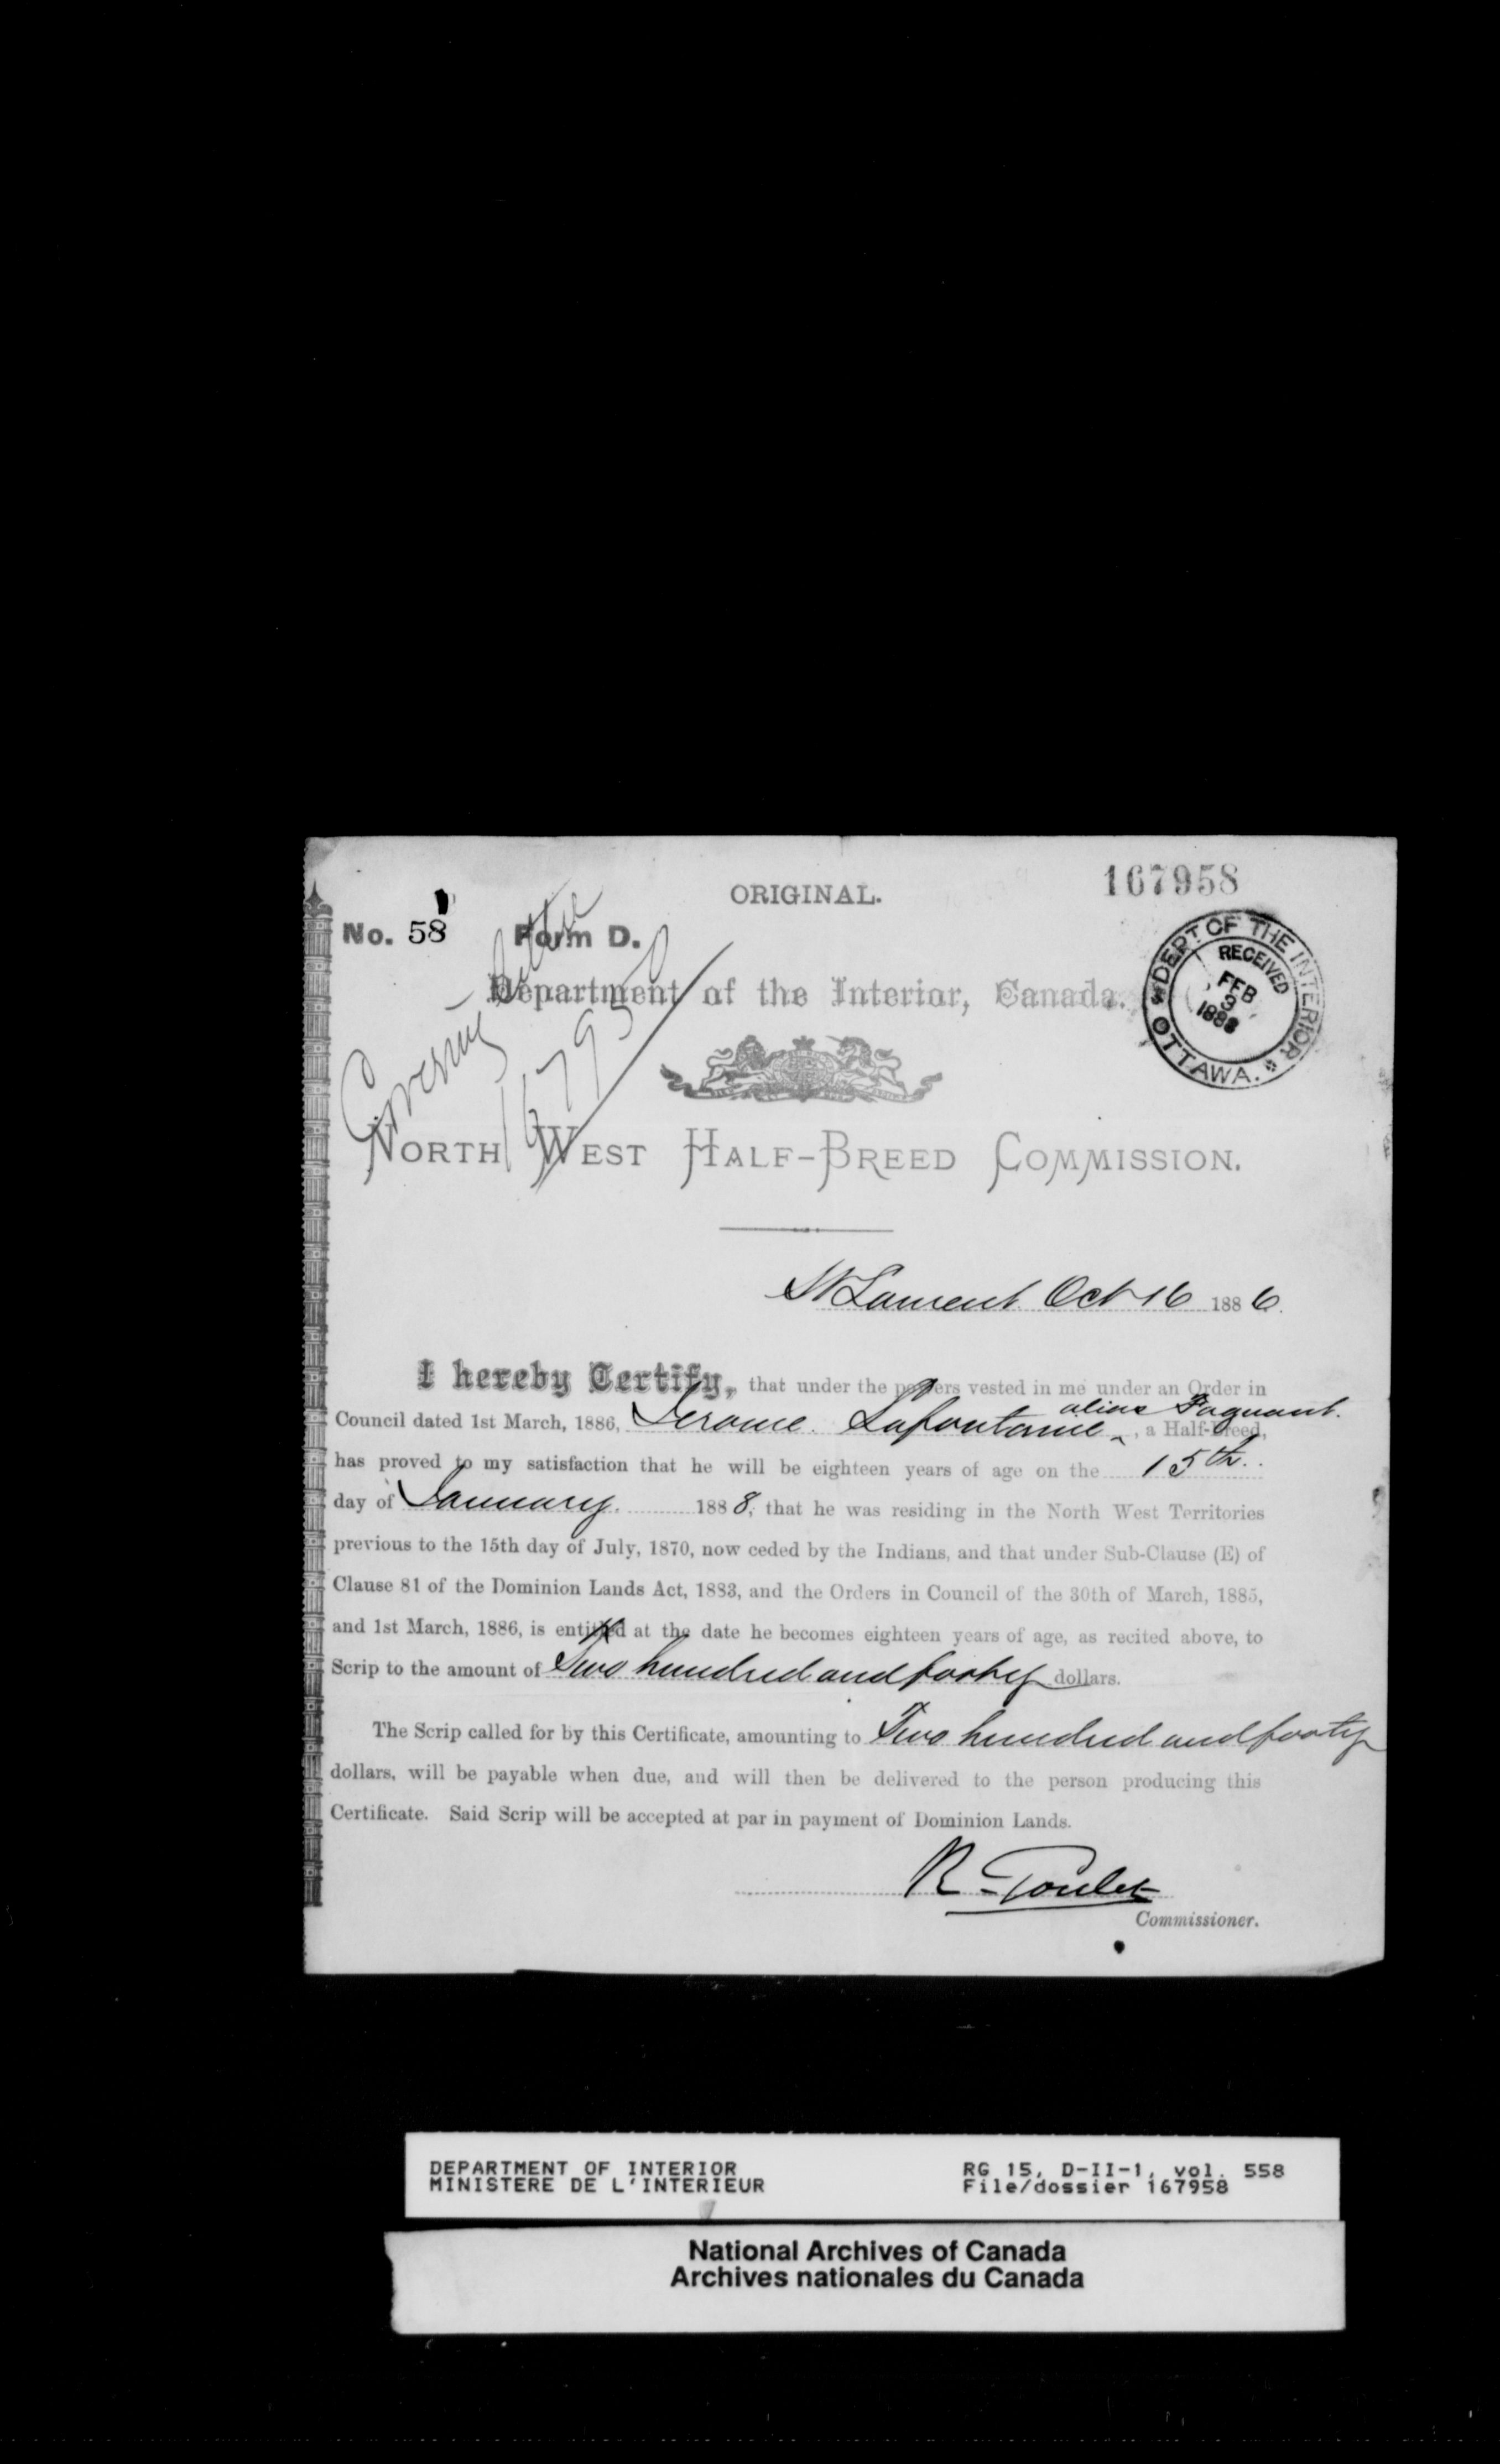 167958
ORIGINAL.
No. 58 Form D.
DEPT. OF THE INTERIOR OTTAWA.
RECEIVED
FEB
3
1888
Department of the Interior, Canada.
Covering Letter
NORTH WEST HALF-BREED COMMISSION.
St Laurent Oct 16 1886.
I hereby Certify, that under the powers vested in me under an Order in
alias Paquant.
Council dated 1st March, 1886, Jerome Lafontaine ^, a Half-Breed,
has proved to my satisfaction that he will be eighteen years of age on the 15th
day of January. 1888, that he was residing in the North West Territories
previous to the 15th day of July, 1870, now ceded by the Indians, and that under Sub-Clause (E) of
Clause 81 of the Dominion Lands Act, 1883, and the Orders in Council of the 30th of March, 1885,
and 1st March, 1886, is entitled at the date he becomes eighteen years of age, as recited above, to
Scrip to the amount of Two hundred and forty dollars.
The Scrip called for by this Certificate, amounting to Two hundred and forty
dollars, will be payable when due, and will then be delivered to the person producing this
Certificate. Said Scrip will be accepted at par in payment of Dominion Lands.
R. Goulet
Commissioner.
DEPARTMENT OF INTERIOR RG 15, D-II-1, vol. 558
MINISTERE DE L'INTERIEUR File/dossier 167958
National Archives of Canada
Archives nationales du Canada